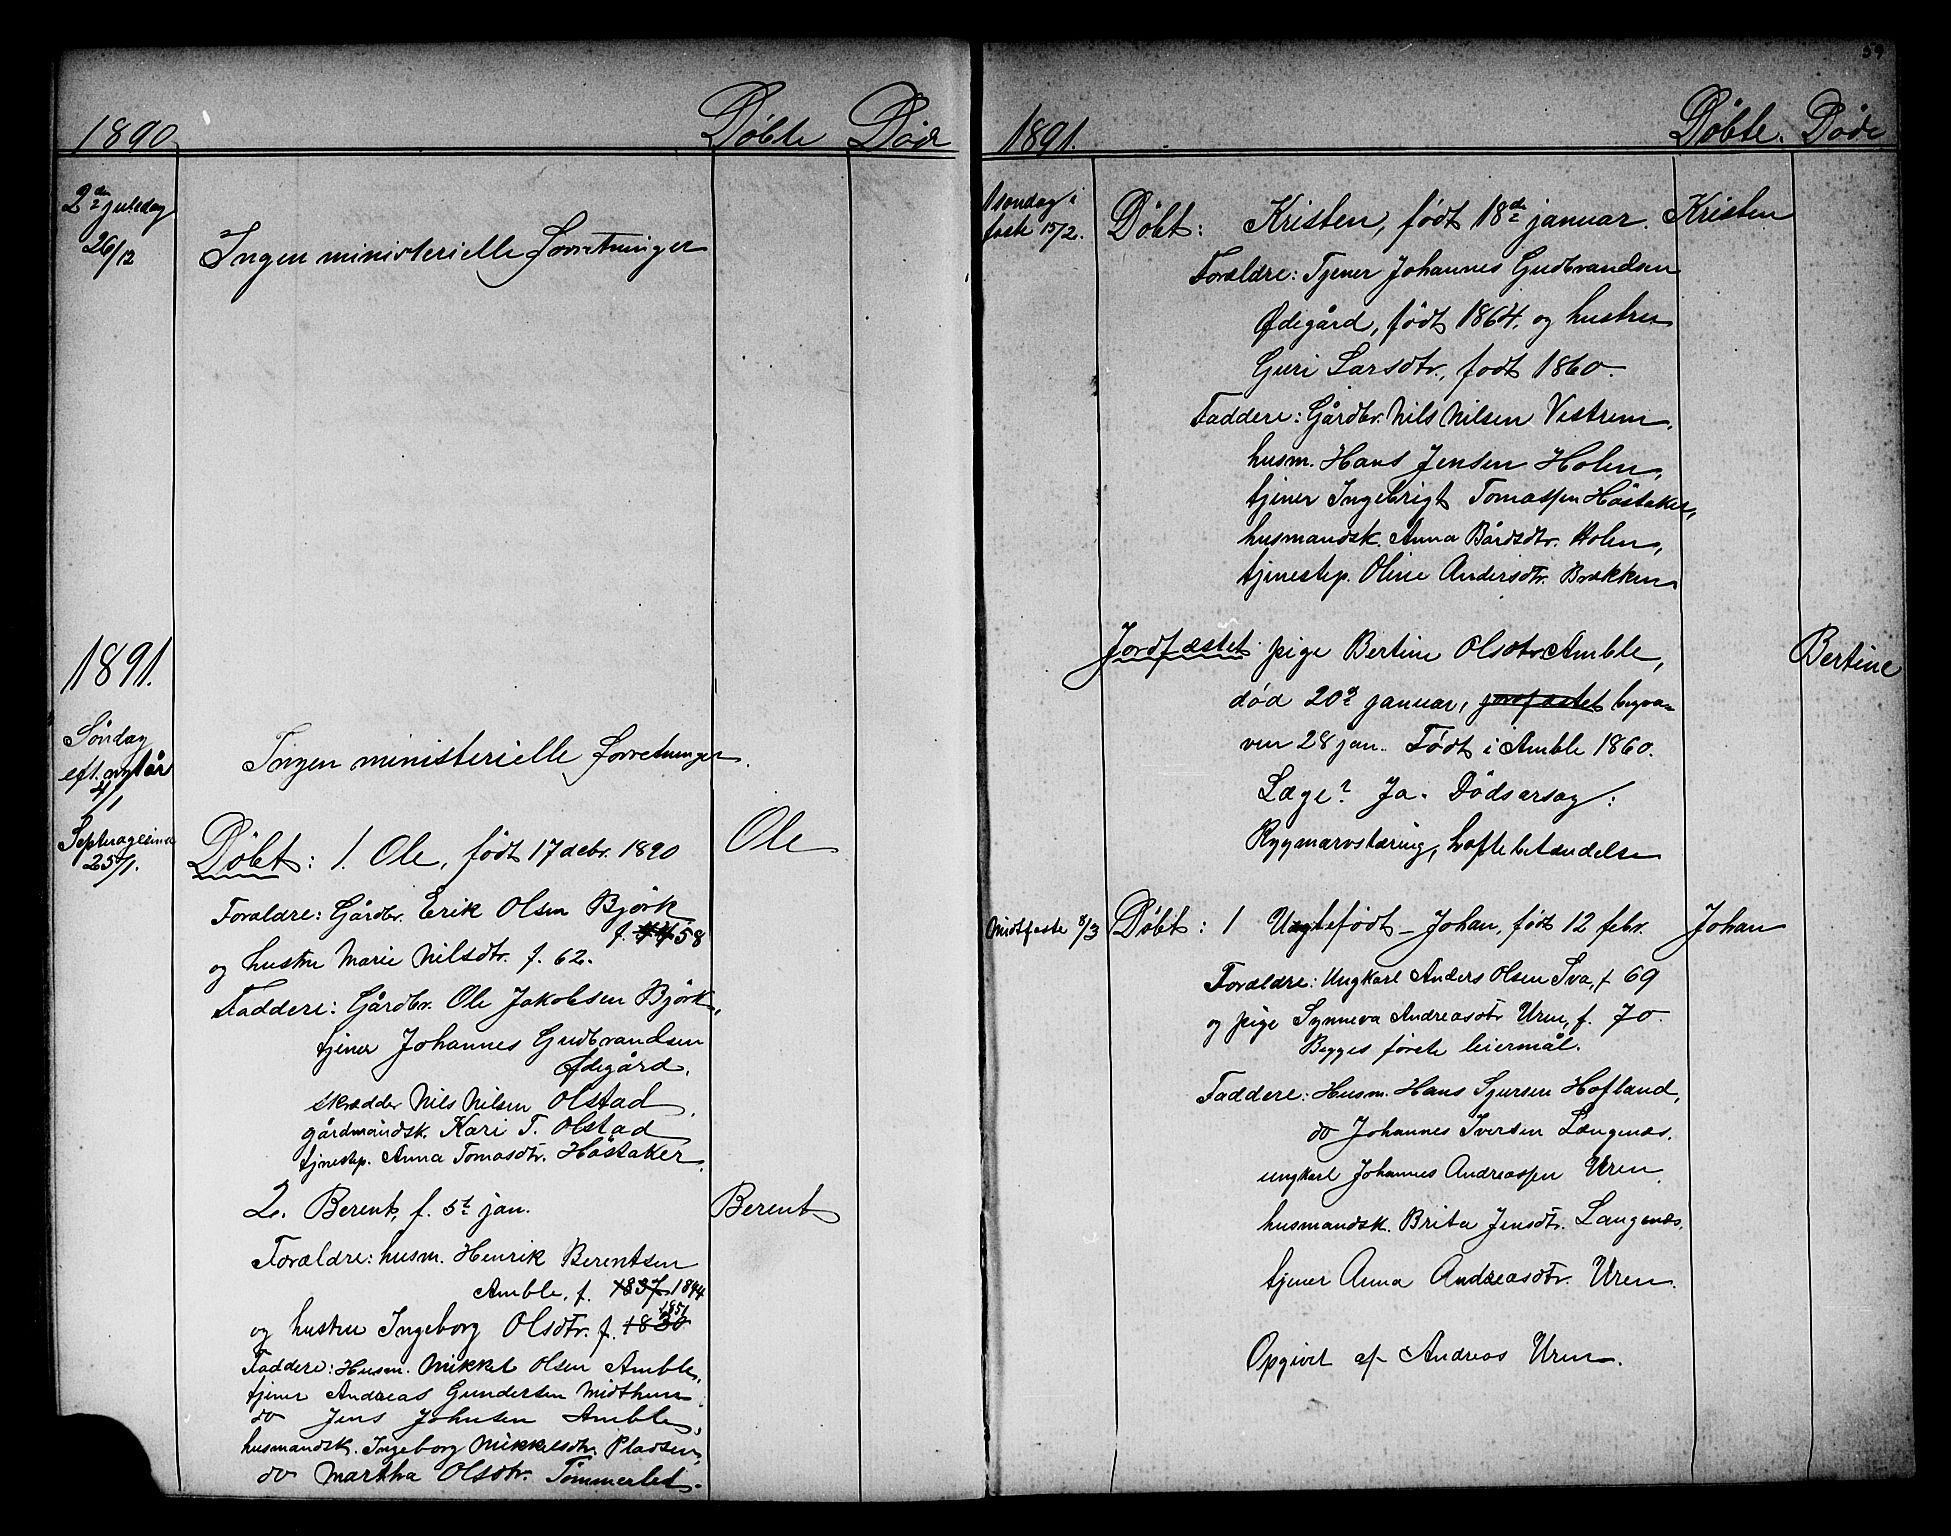 1890
Döbte Död
2den juledag
26/12
Ingen ministerielle forretninger
1891.
Söndag
eft. nytår
4/1
Ingen ministerielle forretninger.
Septuagesima
25/1.
Döbt: 1. Ole, födt 17 decbr. 1890
Ole
Forældre: Gårdbr. Erik Olsen Björk
f. 58
og hustru Marie Nilsdtr. f. 62.
Faddere: Gårdbr. Ole Jakobsen Björk,
tjener Johannes Gudbrandsen
Ødegård,
skrædder Nils Nilsen Olstad,
gårdmandsk. Kari T. Olstad
tjenestep. Anna Tomasdtr. Höstaker.
2. Berent, f. 5te jan.
Berent
Forældre: husm. Henrik Berentsen
Amble, f. 1837 1844
og hustru Ingeborg Olsdtr. f. 1830 1851
Faddere: Husm. Mikkel Olsen Amble,
tjener Andreas Gundersen Midthun
do Jens Johnsen Amble,
husmandsk. Ingeborg Mikkelsdtr. Pladsen,
do Martha Olsdtr. Tömmerlid.
59
1891.
Döbte. Döde
1 söndag i
faste 15/2.
Döbt: Kristen, födt 18de januar.
Kristen
Forældre: Tjener Johannes Gudbrandsen
Ødigård, födt 1864, og hustru
Guri Larsdtr., födt 1860.
Faddere: Gårdbr. Nils Nilsen Vestrem,
husm. Hans Jensen Holen,
tjener Ingebrigt Tomassen Höstaker,
husmandsk. Anna Bårdsdtr. Holen,
tjenestep. Oline Andersdtr. Brækken.
Jordfæstet pige Bertine Olsdtr Amble,
Bertine
död 20de januar, jordfæstet begra-
ven 28 jan. Födt i Amble 1860.
Læge? Ja. Dödsårsag:
Rygmarvstæring, hoftebetændelse
Midtfaste 8/3
Döbt: 1 Uægtefödt – Johan, födt 12 febr.
Johan
Forældre: Ungkarl Anders Olsen Sva, f 69
og pige Synneva Andreasdtr Uren, f. 70.
Begges förste leiermål.
Faddere: Husm. Hans Sjursen Hofland,
do Johannes Iversen Langenæs.
ungkarl Johannes Andreassen Uren,
husmandsk. Brita Jensdtr. Langenæs,
tjener Anna Andreasdtr. Uren.
Opgivet af Andreas Uren.